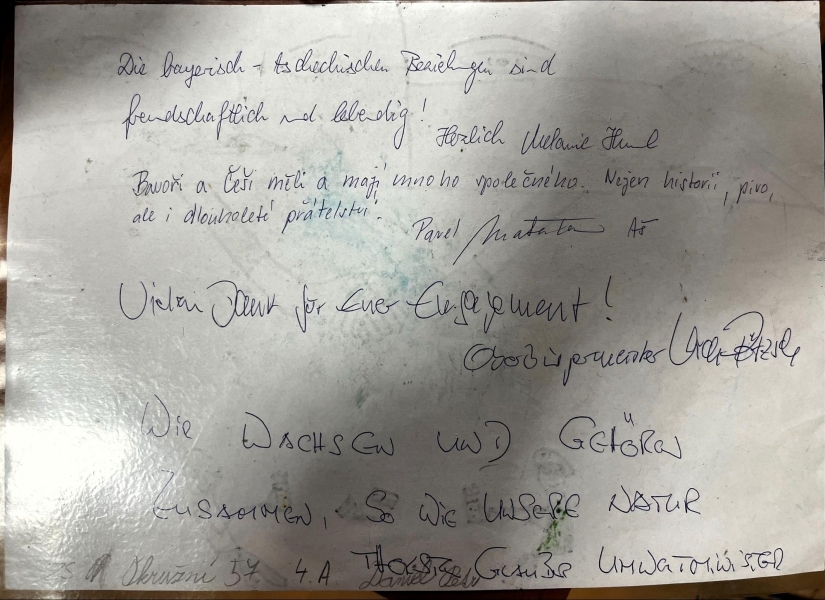 Die bayerisch-tschechischen Beziehungen sind
freundschaftlich und lebendig!
Herzlich Melanie Huml
Bavoři a Češi měli a mají mnoho společného. Nejen historii, pivo,
ale i dlouholeté přátelství.
Pavel Matala Aš
Vielen Dank für Euer Engagement!
Oberbürgermeister Ulrich Pötzsch
Wir WACHSEN UND GEHÖREN
ZUSAMMEN, SO WIE UNSERE NATUR
THORSTEN GLAUBER UMWELTMINISTER
Okružní 57 4.A Daniel